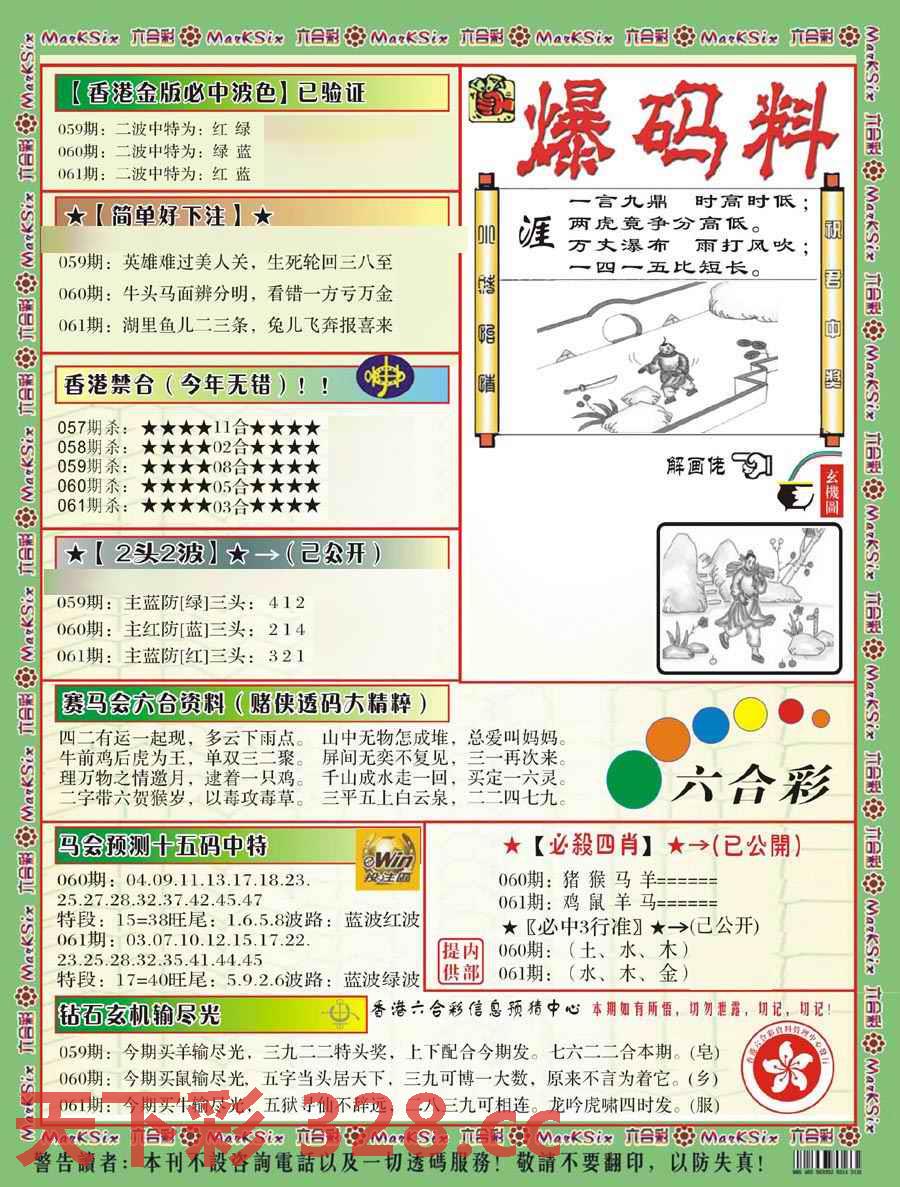 MarKSix 六合彩 MarKSix 六合彩 MarKSix 六合彩 MarKSix 六合彩 MarKSix 六合彩
【香港金版必中波色】已验证
059期：二波中特为：红 绿
060期：二波中特为：绿 蓝
061期：二波中特为：红 蓝
★【简单好下注】★
059期：英雄难过美人关，生死轮回三八至
060期：牛头马面辨分明，看错一方亏万金
061期：湖里鱼儿二三条，兔儿飞奔报喜来
香港禁合（今年无错）！！
057期杀：★★★★11合★★★★
058期杀：★★★★02合★★★★
059期杀：★★★★08合★★★★
060期杀：★★★★05合★★★★
061期杀：★★★★03合★★★★
★【 2头2波】★→(已公开)
059期：主蓝防[绿]三头：412
060期：主红防[蓝]三头：214
061期：主蓝防[红]三头：321
爆码料
涯
一言九鼎 时高时低；
两虎竟争分高低。
万丈瀑布 雨打风吹；
一四一五比短长。
祝君中奖
解画佬
玄機圖
赛马会六合资料（赌侠透码大精粹）
四二有运一起现，多云下雨点。 山中无物怎成堆，总爱叫妈妈。
牛前鸡后虎为王，单双三二聚。 屏间无奕不复见，三一再次来。
理万物之情邀月，逮着一只鸡。 千山成水走一回，买定一六灵。
二字带六贺猴岁，以毒攻毒草。 三平五上白云泉，二二四七九。
六合彩
马会预测十五码中特
eWin
投注區
060期：04.09.11.13.17.18.23.
25.27.28.32.37.42.45.47
特段：15=38旺尾：1.6.5.8波路：蓝波红波
061期：03.07.10.12.15.17.22.
23.25.28.32.35.41.44.45
特段：17=40旺尾：5.9.2.6波路：蓝波绿波
★【必殺四肖】★→(已公開)
060期：猪 猴 马 羊======
061期：鸡 鼠 羊 马======
★〖必中3行准〗★→(已公开)
060期：（土、水、木）
061期：（水、木、金）
内部提供
钻石玄机输尽光
香港六合彩信息预猜中心 本期如有所悟，切勿泄露，切记，切记！
059期：今期买羊输尽光，三九二二特头奖，上下配合今期发。七六二二合本期。(皂)
060期：今期买鼠输尽光，五字当头居天下，三九可博一大数，原来不言为着它。(乡)
061期：今期买牛输尽光，五狱寻仙不辞远，二八三九可相连。龙吟虎啸四时发。(服)
天下彩 328.cc
MarKSix 六合彩 MarKSix 六合彩 MarKSix 六合彩 MarKSix 六合彩 MarKSix 六合彩
警告讀者：本刊不設咨詢電話以及一切透碼服務！敬請不要翻印，以防失真！